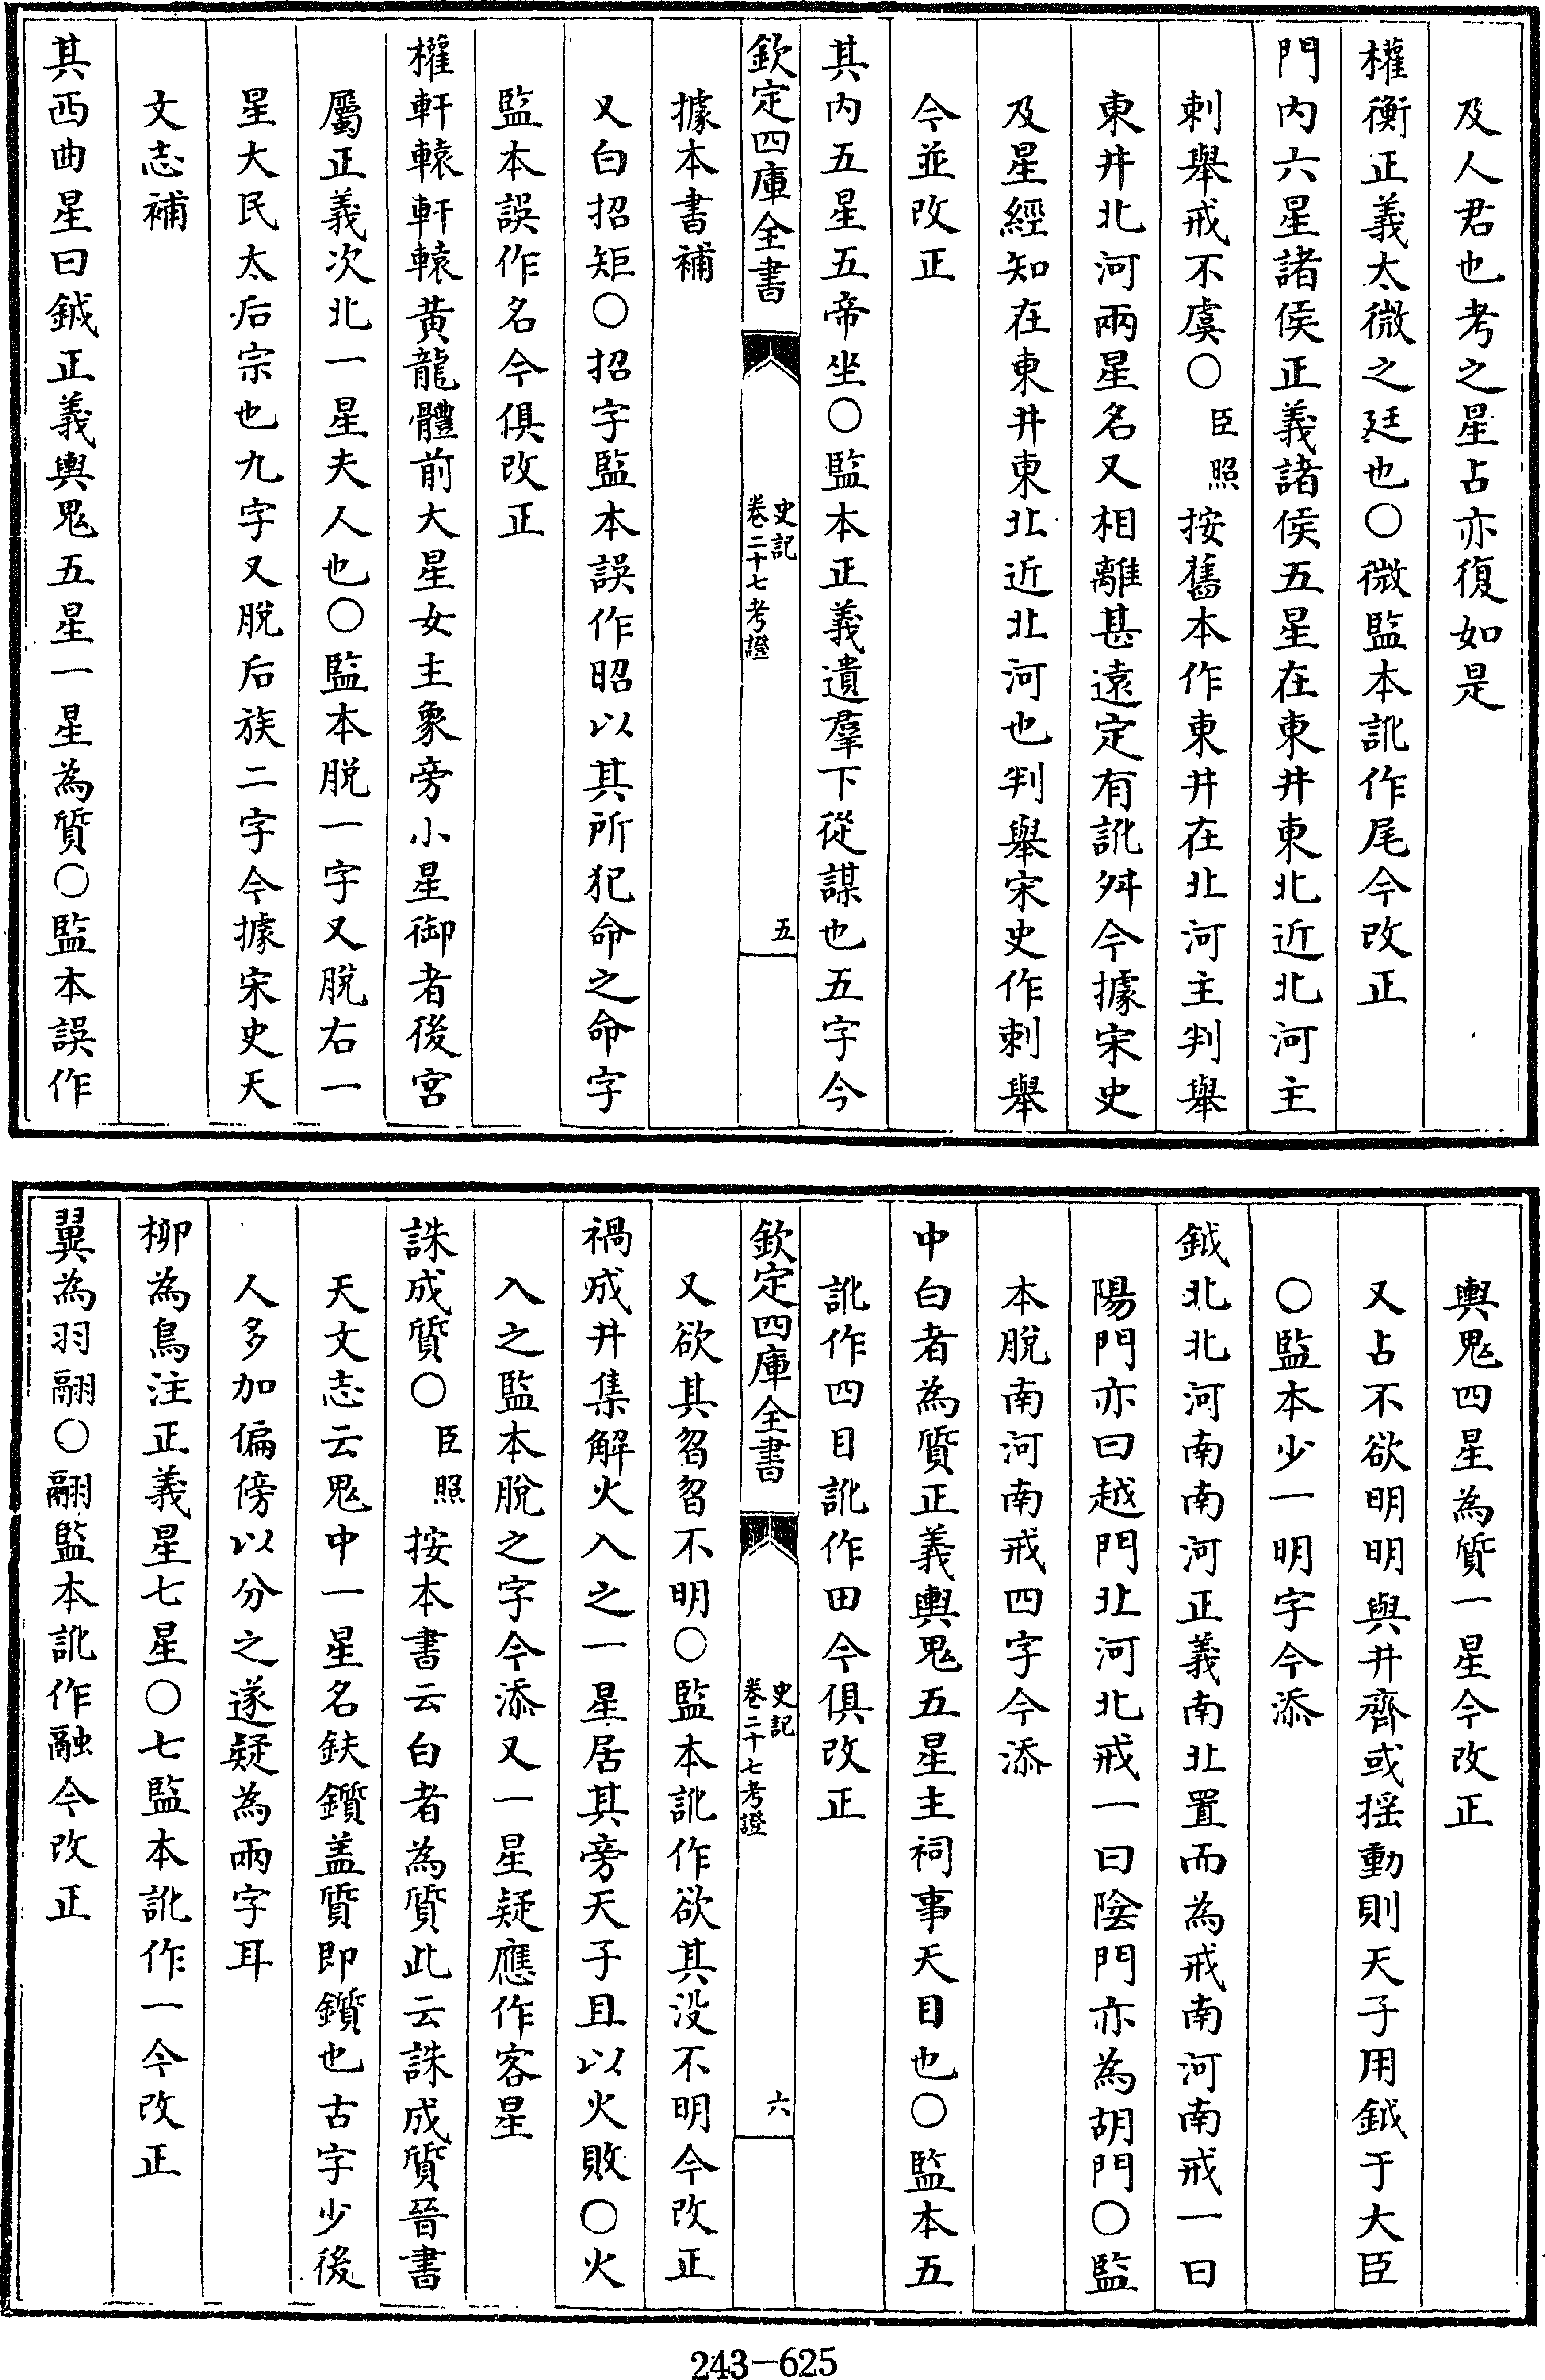 及人君也考之星占亦復如是
權衡正義太微之廷也○微監本訛作尾今改正
門内六星諸侯正義諸侯五星在東井東北近北河主
刺舉戒不虞○臣照按舊本作東井在北河主判舉
東井北河兩星名又相離甚遠定有訛舛今據宋史
及星經知在東井東北近北河也判舉宋史作刺舉
今並改正
其内五星五帝坐○監本正義遺羣下從謀也五字今
欽定四庫全書
史記
卷二十七考證
五
據本書補
又白招矩○招字監本誤作昭以其所犯命之命字
監本誤作名今俱改正
權軒轅軒轅黄龍體前大星女主象旁小星御者後宮
屬正義次北一星夫人也○監本脱一字又脱右一
星大民太后宗也九字又脱后族二字今據宋史天
文志補
其西曲星曰鉞正義輿鬼五星一星為質○監本誤作
輿鬼四星為質一星今改正
又占不欲明明與井齊或揺動則天子用鉞于大臣
○監本少一明字今添
鉞北北河南南河正義南北置而為戒南河南戒一曰
陽門亦曰越門北河北戒一曰陰門亦為胡門○監
本脱南河南戒四字今添
中白者為質正義輿鬼五星主祠事天目也○監本五
訛作四目訛作田今俱改正
欽定四庫全書
史記
卷二十七考證
六
又欲其曶曶不明○監本訛作欲其没不明今改正
禍成井集解火入之一星居其旁天子且以火敗○火
入之監本脱之字今添又一星疑應作客星
誅成質○臣照按本書云白者為質此云誅成質晉書
天文志云鬼中一星名鈇鑕盖質即鑕也古字少後
人多加偏傍以分之遂疑為兩字耳
柳為鳥注正義星七星○七監本訛作一今改正
翼為羽翮○翮監本訛作融今改正
243-625